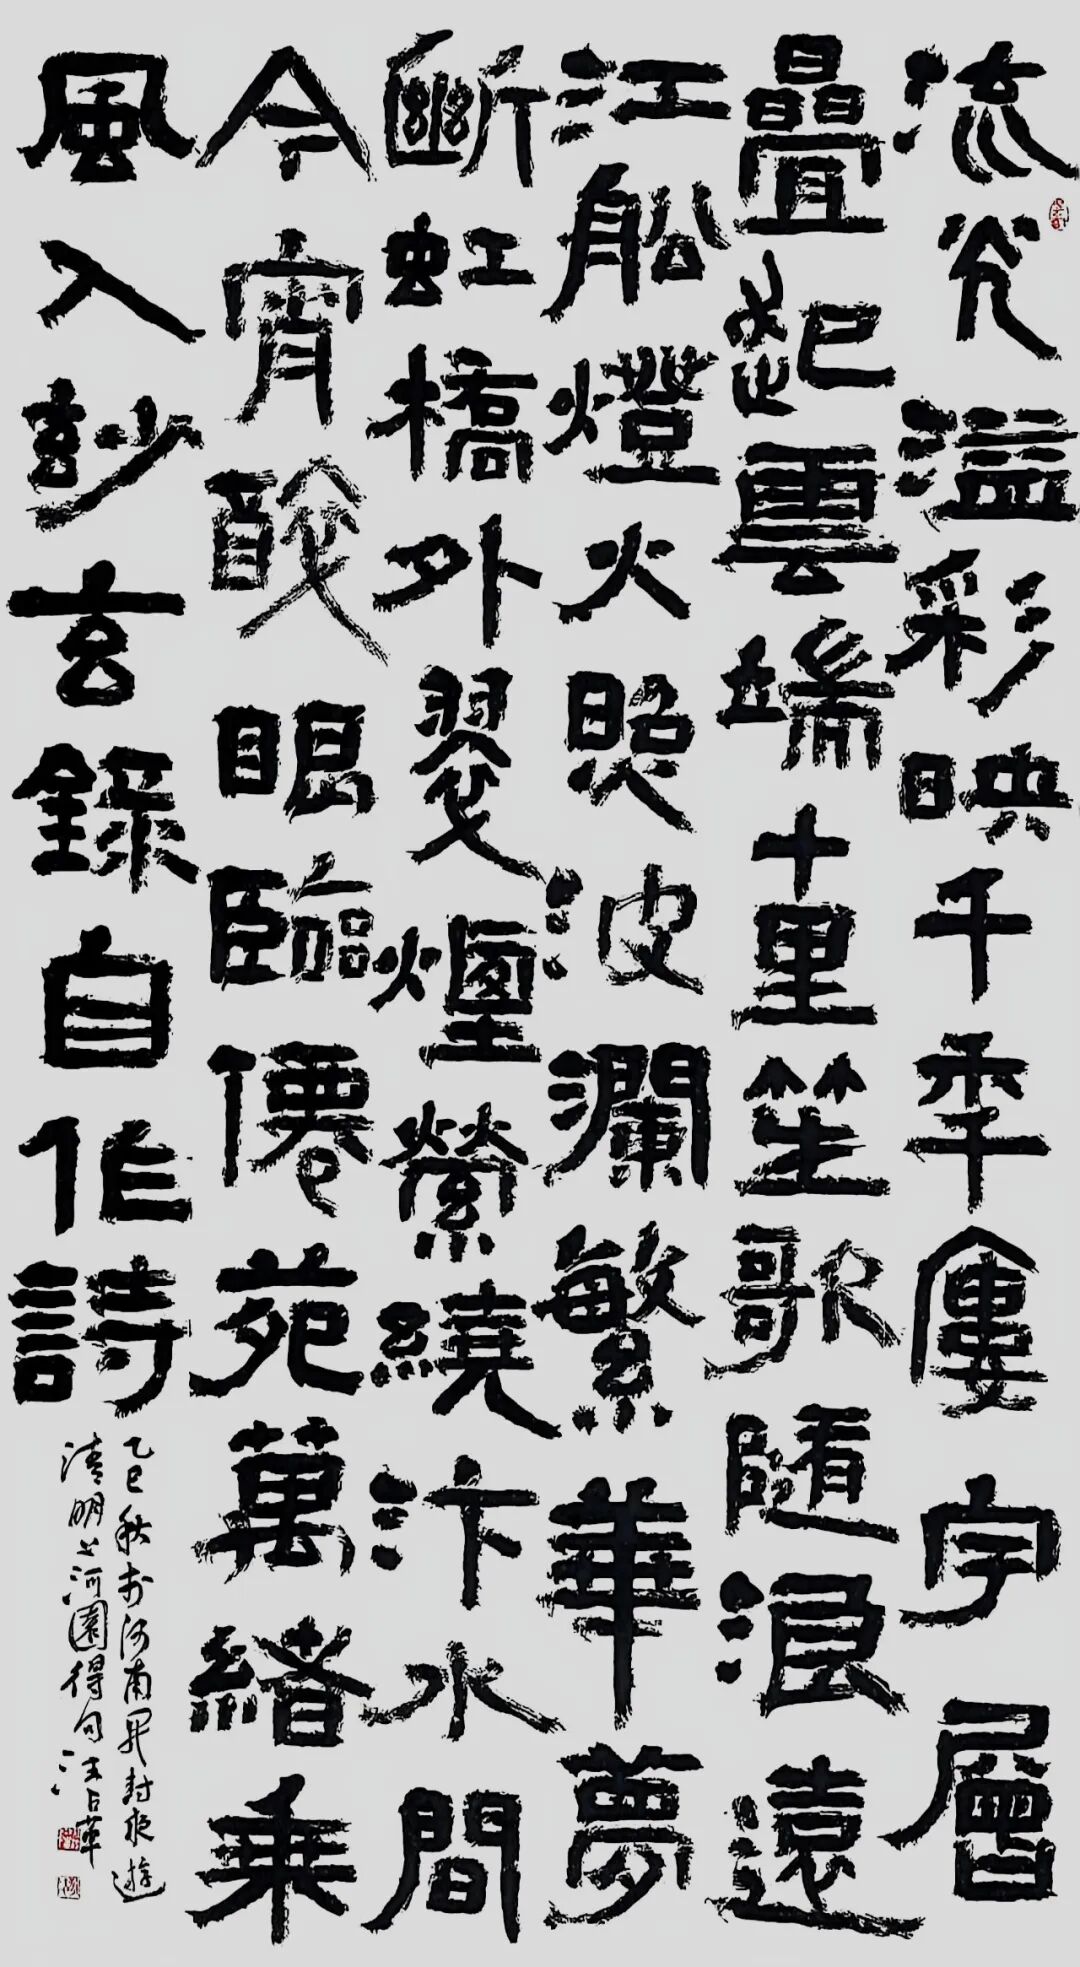 流光溢彩映千年廔宇層
疊起雲端十里笙歌隨浪遠
江船燈火照波瀾繁華夢
斷虹橋外翠煙縈繞汴水間
今宵醉眼臨僊苑萬緒乘
風入玅玄錄自作詩
乙巳秋於河南開封夜遊
清明上河園得句汪占革